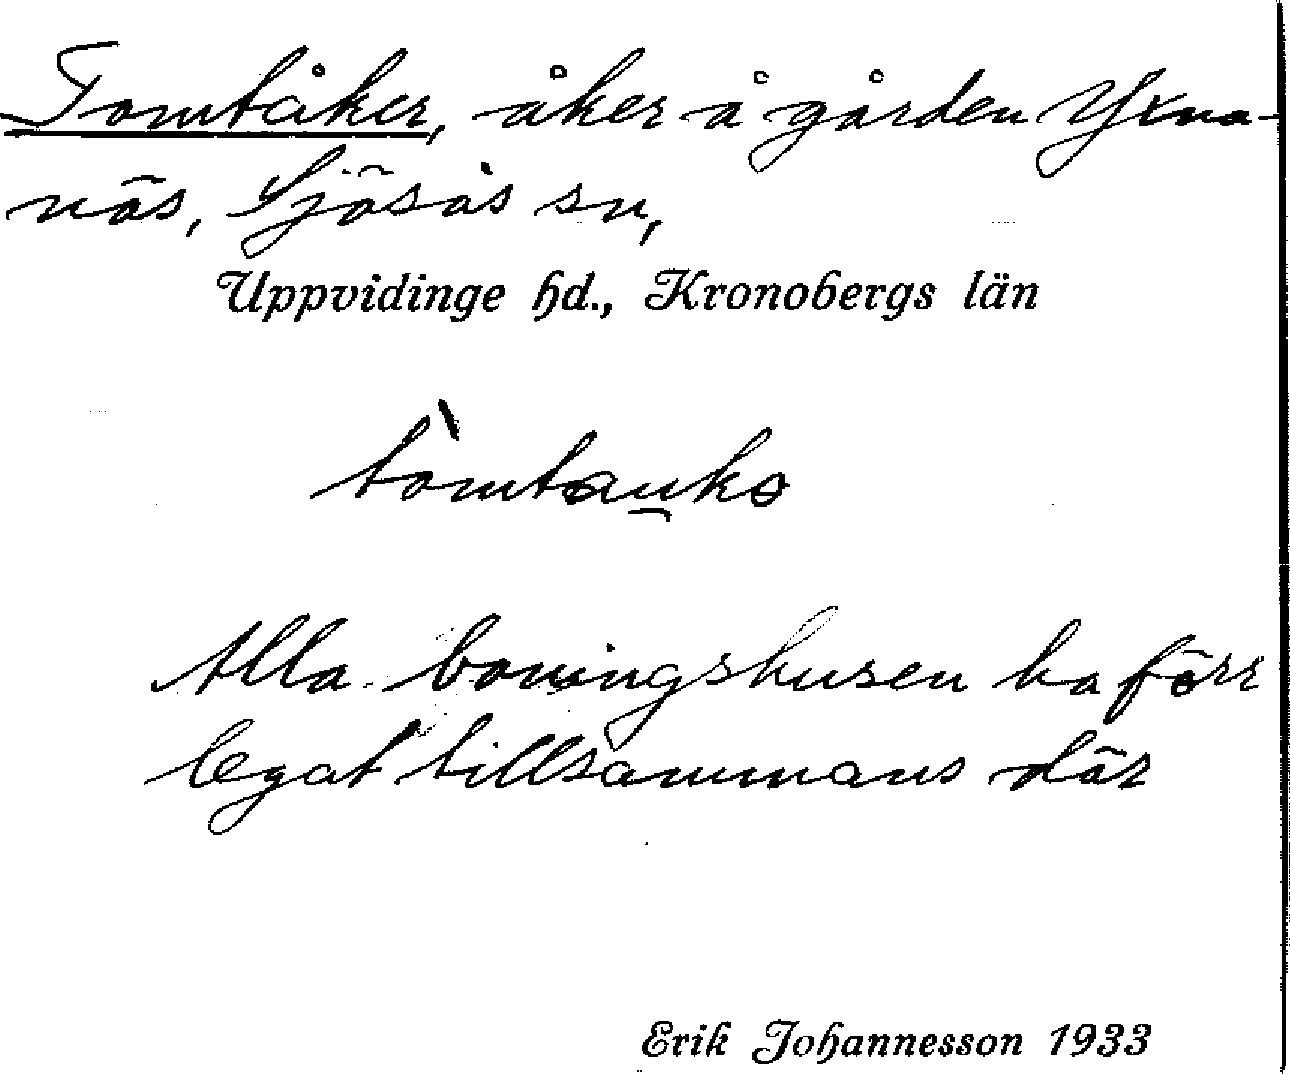 Tomtåker, åker å gården Yxna-
näs, Sjösås sn,
Uppvidinge hd., Kronobergs län
Alla boningshusen ha förr
legat tillsammans där
Erik Johannesson 1933